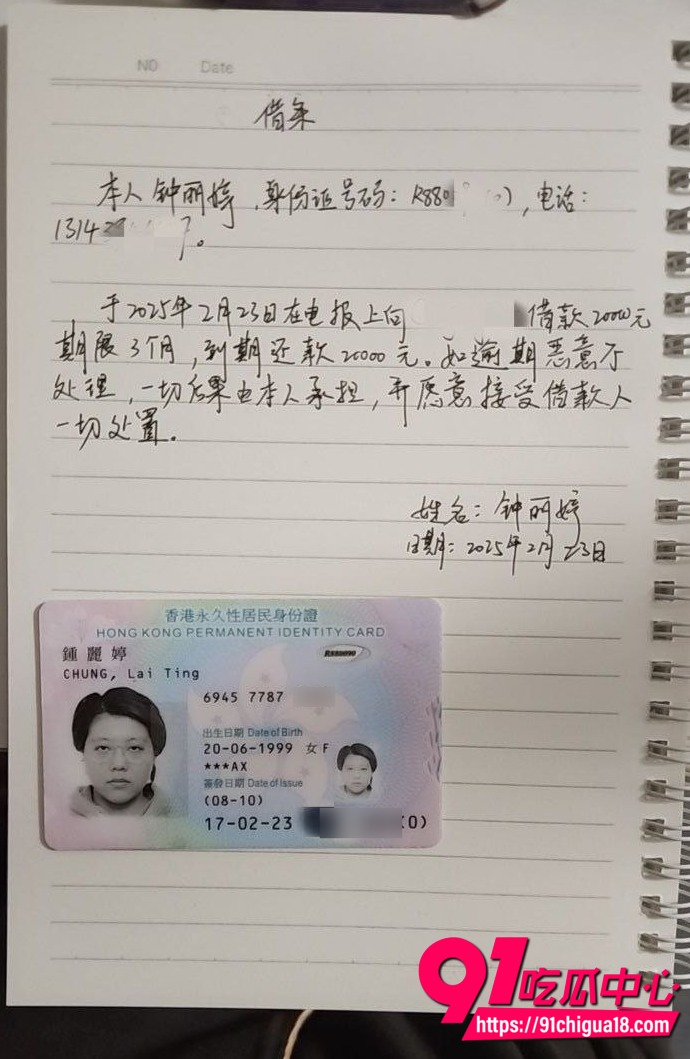 NO Date
借条
本人钟丽婷,身份证号码: ,电话:
于2025年2月23日在电报上向 借款20000元
期限3个月,到期还款20000元。如逾期恶意不
处理,一切后果由本人承担,并愿意接受借款人
一切处置。
姓名:钟丽婷
日期:2025年2月23日
香港永久性居民身份證
HONG KONG PERMANENT IDENTITY CARD
鍾麗婷
CHUNG, Lai Ting
6945 7787
出生日期 Date of Birth
20-06-1999 女 F
***AX
簽發日期 Date of Issue
(08-10)
17-02-23 (0)
91吃瓜中心
https://91chigua18.com